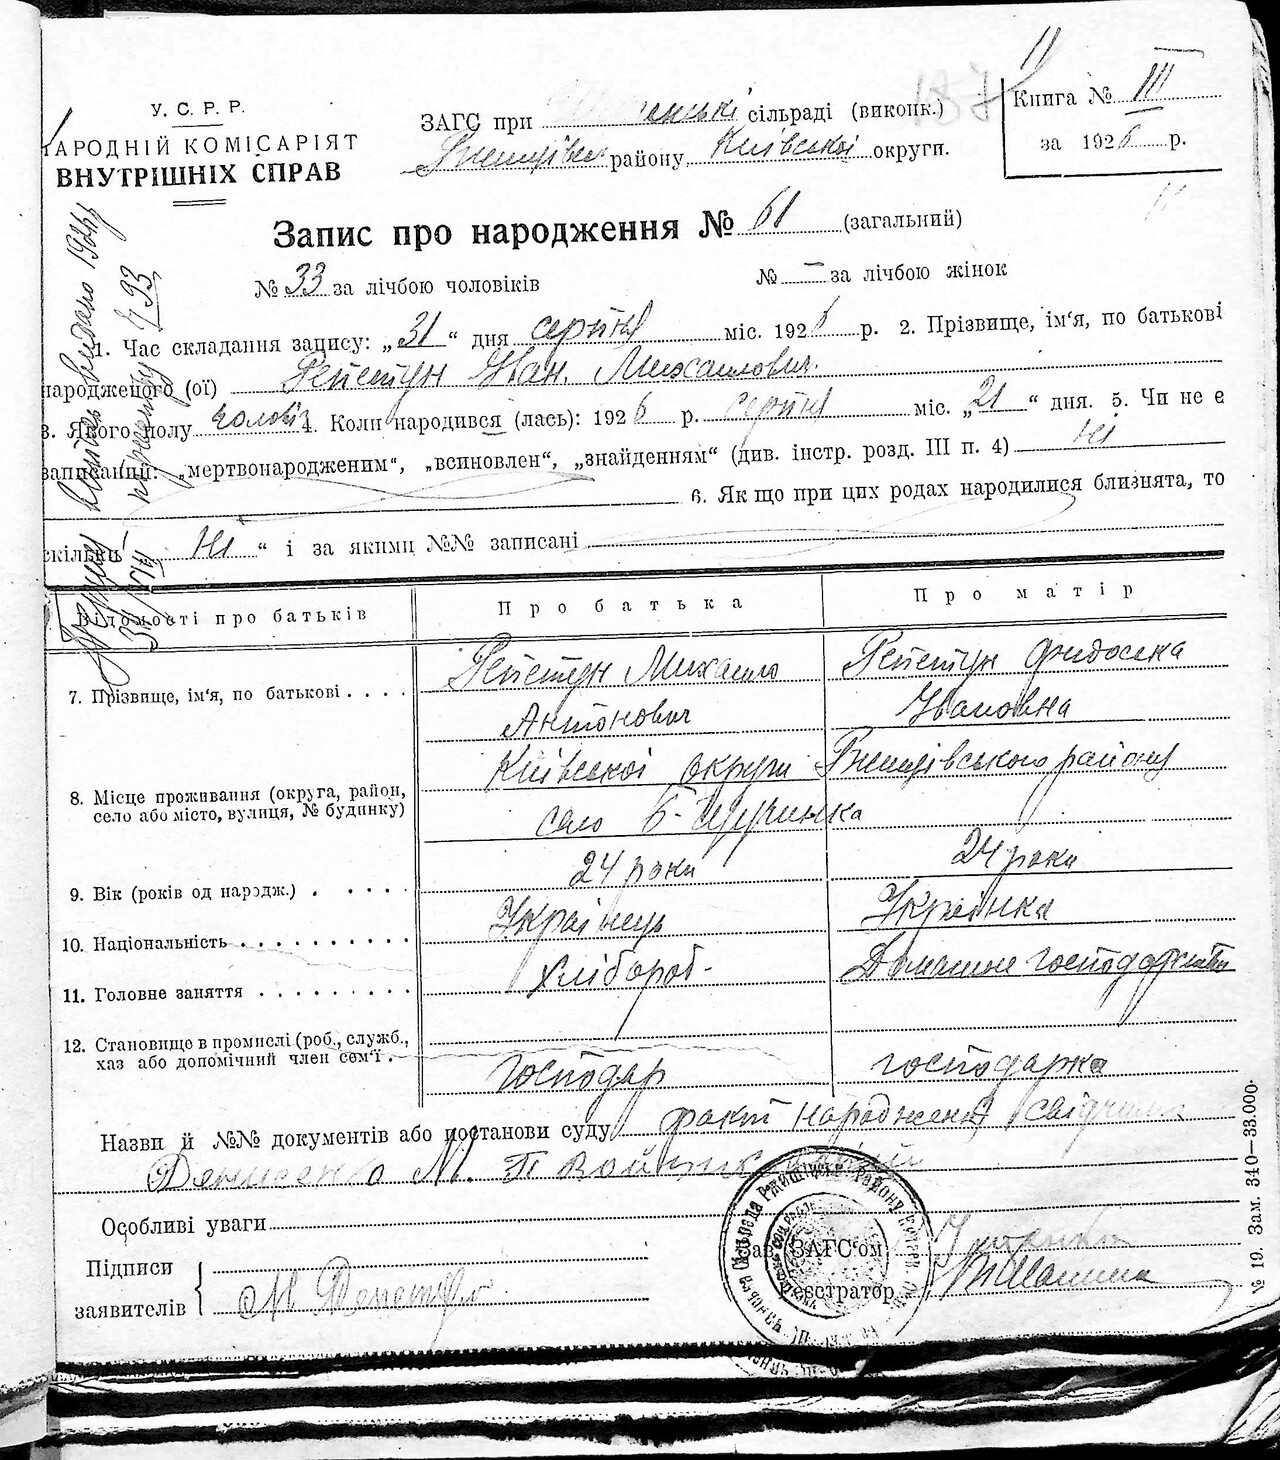 11
У. С. Р. Р.
НАРОДНІЙ КОМІСАРІЯТ
ВНУТРІШНІХ СПРАВ
ЗАГС при сільраді (виконк.)
району Київської округи.
Книга № III
за 1926 р.
Запис про народження № 61 (загальний)
№ 33 за лічбою чоловіків № — за лічбою жінок
1. Час складання запису: „31“ дня серпня міс. 1926 р. 2. Прізвище, ім'я, по батькові
народженого (ої) Репетун Іван Михаилович.
3. Якого полу чолові 4. Коли народився (лась): 1926 р. серпня міс. „21“ дня. 5. Чи не є
записаний: „мертвонародженим“, „всиновлен“, „знайденням“ (див. інстр. розд. III п. 4) Ні
6. Як що при цих родах народилися близнята, то
скільки Ні “ і за якими №№ записані
Відомості про батьків Про батька Про матір
7. Прізвище, ім'я, по батькові . . . . Репетун Михаило Репетун Фидоська
Антонович Івановна
8. Місце проживання (округа, район, село або місто, вулиця, № будинку) Київської округи району
село Б-Щучинка
9. Вік (років од народж.) . . . . . 24 роки 24 роки
10. Національність . . . . . . . . . . Українець Українка
11. Головне заняття . . . . . . . . . Хлібороб- Домашне господарство
12. Становище в промислі (роб., служб., хаз або допомічний член сем'ї . господар господарка
Назви й №№ документів або постанови суду факт народження свідчили
Денисенко М. П
Особливі уваги
Підписи
заявителів
М Репетун
Зав. ЗАГС'ом
Реєстратор
№ 19. Зам. 340—33.000.